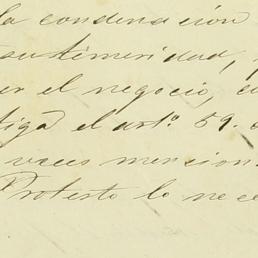 la condenación
su temeridad,
er el negocio, co
tiga el arto. 59.
veces mencion
Protesto lo nece